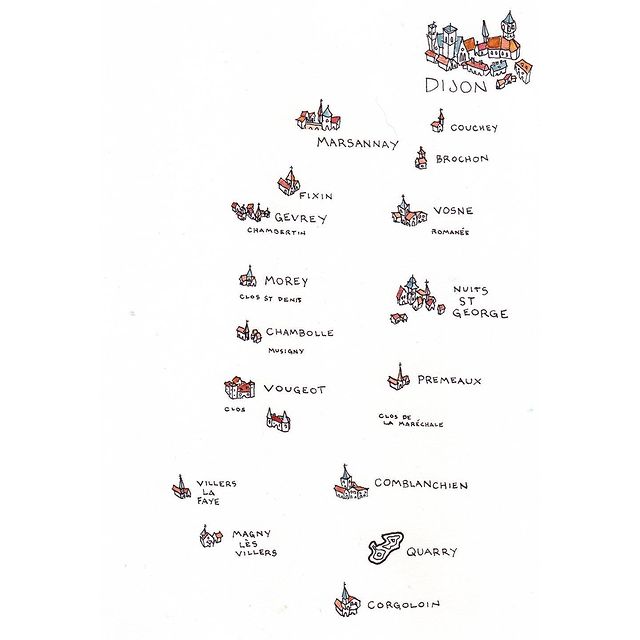 DIJON
COUCHEY
MARSANNAY
BROCHON
FIXIN
GEVREY
CHAMBERTIN
VOSNE
ROMANÉE
MOREY
CLOS ST DENIS
NUITS
ST
GEORGE
CHAMBOLLE
MUSIGNY
VOUGEOT
CLOS
PREMEAUX
CLOS DE
LA MARÉCHALE
VILLERS
LA
FAYE
COMBLANCHIEN
MAGNY
LÈS
VILLERS
QUARRY
CORGOLOIN